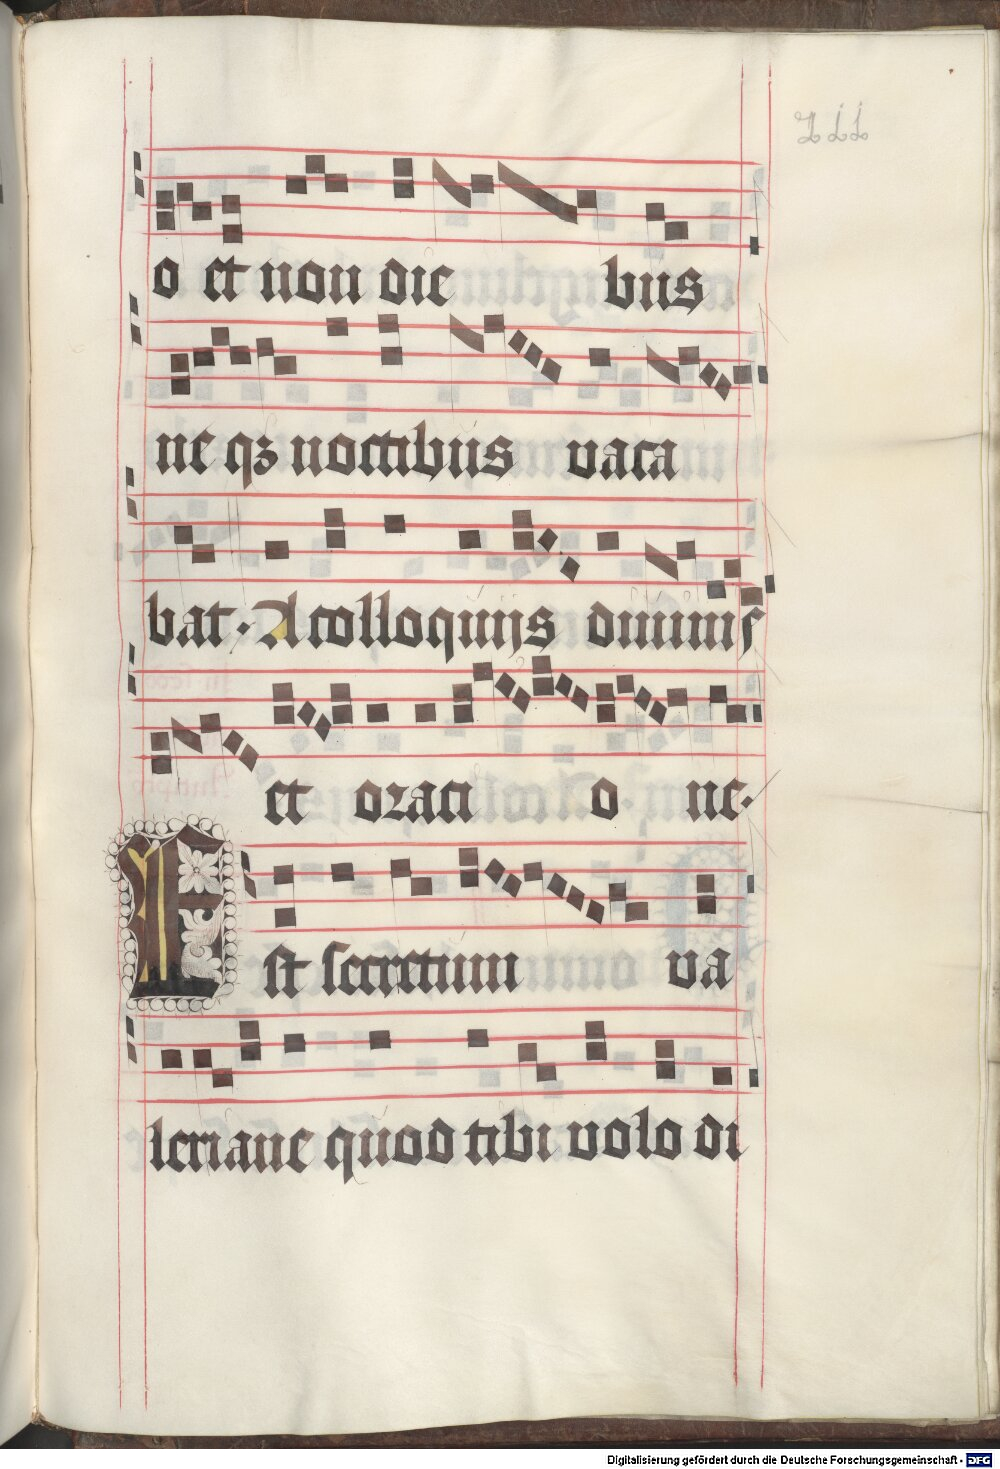 o et non die bus
ne qʒ noctibus vaca
bat · A colloquijs diuinis
et oraci o ne ·
Est secretum va
leriane quod tibi volo di
Digitalisierung gefördert durch die Deutsche Forschungsgemeinschaft - DFG